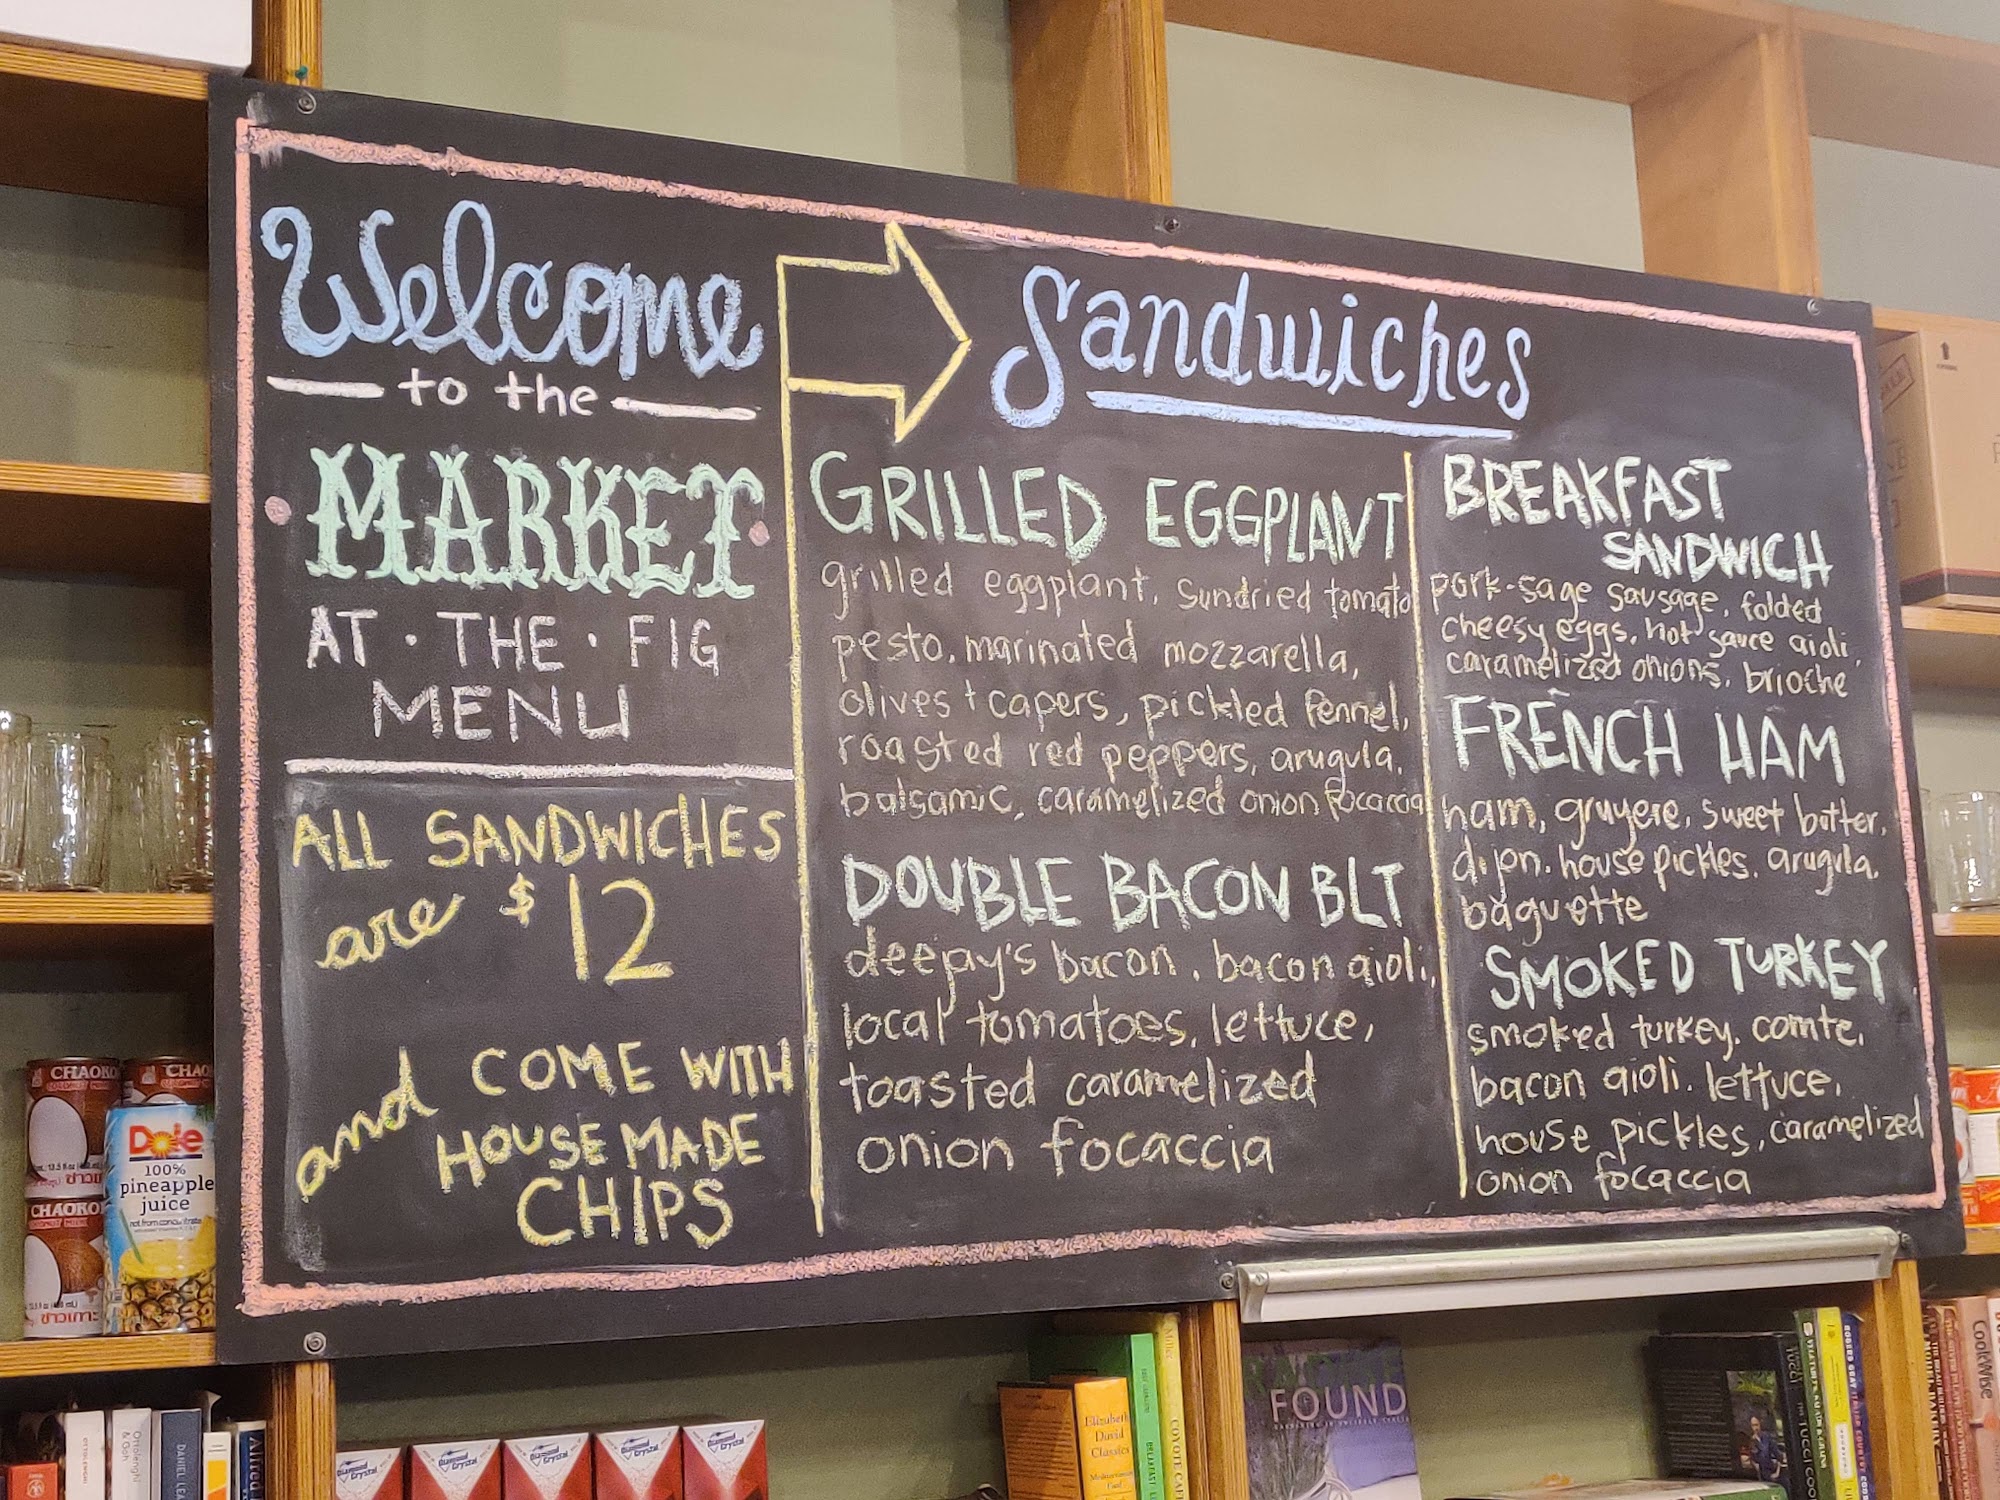 Welcome
to the
MARKET
AT · THE · FIG
MENU
ALL SANDWICHES
are $12
and COME WITH
HOUSE MADE
CHIPS
Sandwiches
GRILLED EGGPLANT
grilled eggplant, sundried tomato
pesto, marinated mozzarella,
olives + capers, pickled fennel,
roasted red peppers, arugula,
balsamic, caramelized onion focaccia
DOUBLE BACON BLT
deepjy's bacon, bacon aioli,
local tomatoes, lettuce,
toasted caramelized
onion focaccia
BREAKFAST
SANDWICH
pork-sage sausage, folded
cheesy eggs, hot sauce aioli,
caramelized onions, brioche
FRENCH HAM
ham, gruyere, sweet butter,
dijon, house pickles, arugula,
baguette
SMOKED TURKEY
smoked turkey, comte,
bacon aioli, lettuce,
house pickles, caramelized
onion focaccia
CHAOKO
CHAO
CHAOKO
ชาวเกาะ
Dole
100%
pineapple
juice
OTTOLENGHI
Ottolenghi
& Goh
DANIEL
Alfred
Diamond Crystal
Diamond Crystal
Diamond Crystal
Diamond Crystal
Diamond Crystal
Elizabeth
David
Classics
Miller
BREAKFAST
COYOTE CAFE
FOUND
CookWise